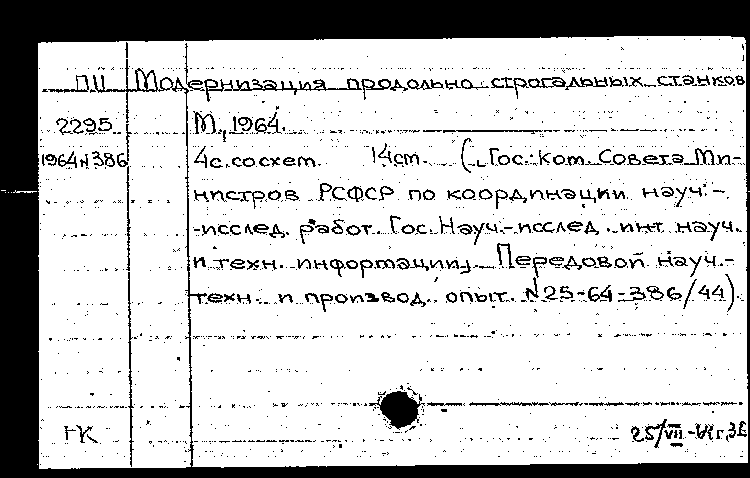 ПII Модернизация продольно строгальных станков
2295 М., 1964.
1964 № 386 4с. со схем. 14 см. (Гос. ком. Совета Ми-
нистров РСФСР по координации науч.-
-исслед. работ. Гос. Науч.-исслед. инт науч.
и техн. информации). Передовой науч.-
техн. и производ. опыт. № 25-64-386/44).
НК 25/VII